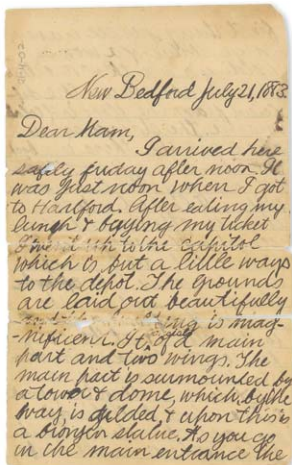 New Bedford July 21, 1883.
Dear Mam,
I arrived here
safely friday after noon. It
was just noon when I got
to Hartford. After eating my
lunch & buying my ticket
I went up to the capitol
which is but a little ways
to the depot. The grounds
are laid out beautifully
is mag-
nificent. It of a main
part and two wings. The
main part is surmounted by
a tower & dome, which, by the
way, is gilded & upon this is
a bronze statue. As you go
in the main entrance the